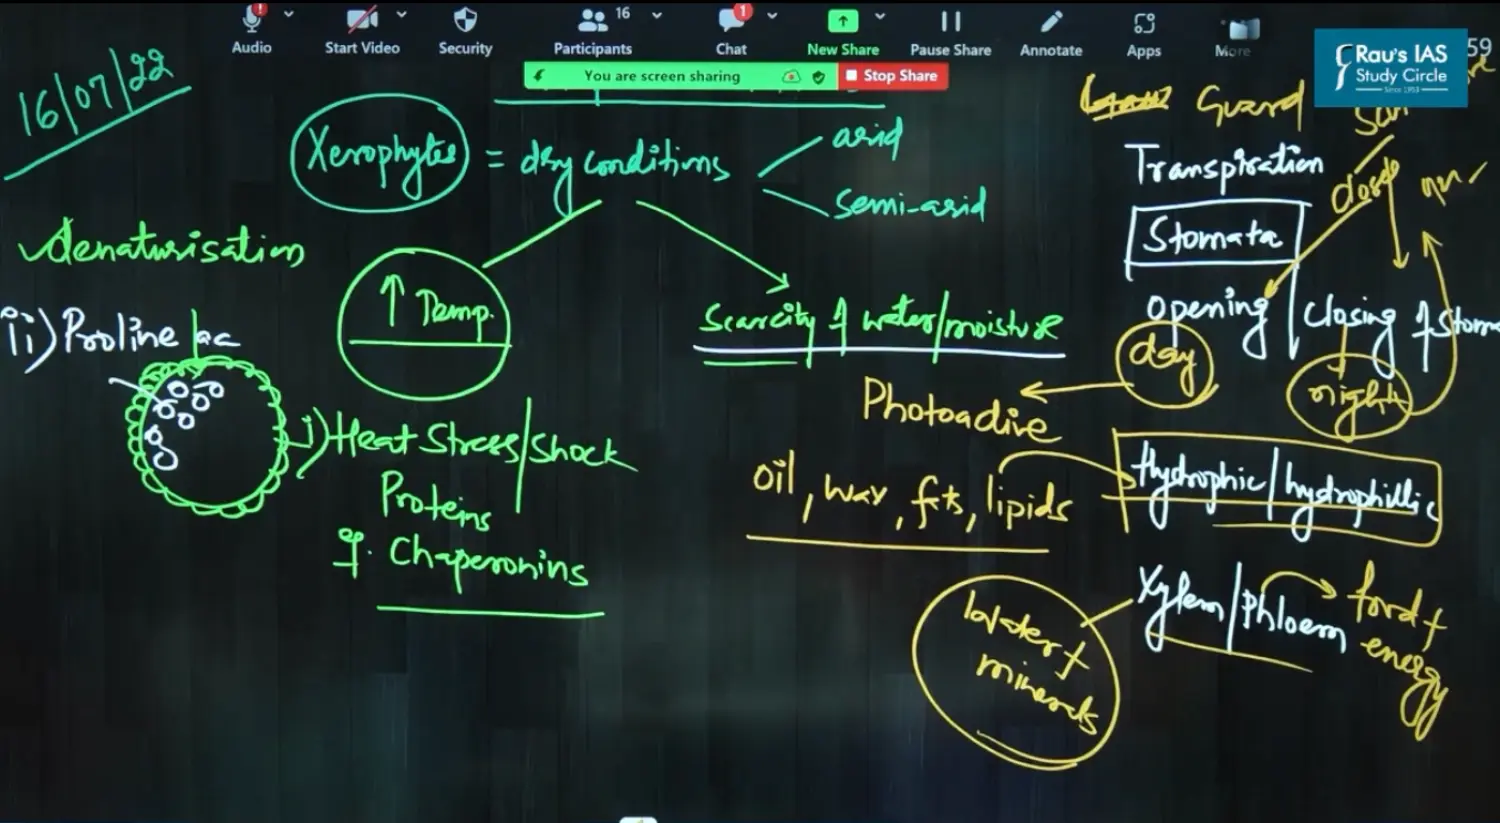 Audio
Start Video
Security
Participants
16
Chat
1
New Share
Pause Share
Annotate
Apps
More
You are screen sharing
Stop Share
Rau's IAS
Study Circle
Since 1953
59
16/07/22
Xerophytes = dry conditions
arid
semi-arid
denaturisation
↑ Temp.
Scarcity of water/moisture
ii) Proline
i) Heat Stress/Shock
Proteins
Chaperonins
Guard
Transpiration
Stomata
opening / closing of Stoma
day
night
Photoactive
oil, wax, fts, lipids
Hydrophic/hydrophillic
Xylem/Phloem
food +
energy
Water +
minerals